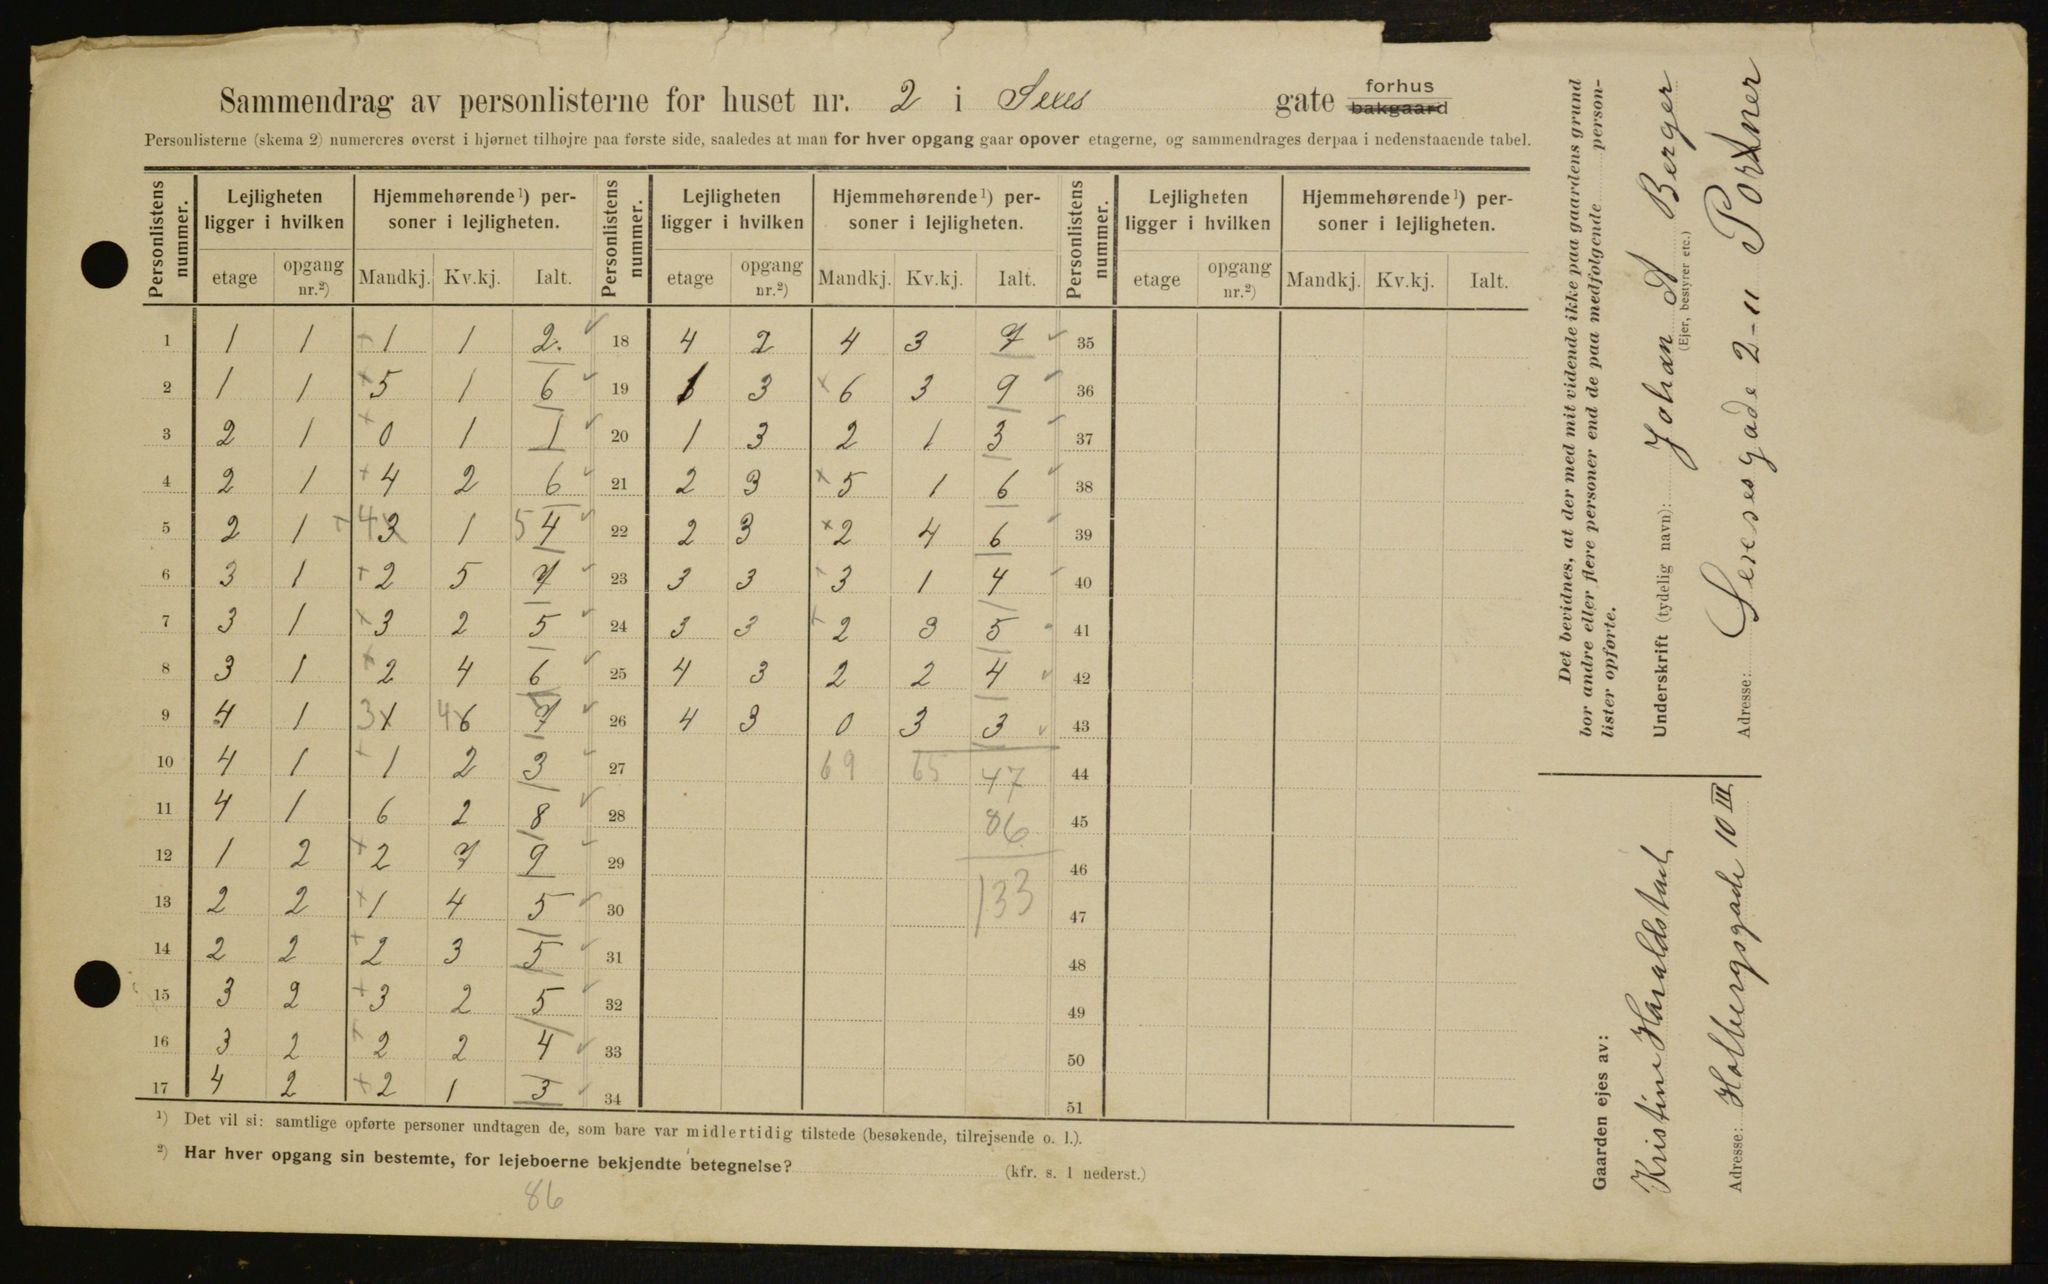 Sammendrag av personlisterne for huset nr. 2 i Seves gate forhus bakgaard
Personlisterne (skema 2) numereres øverst i hjørnet tilhøjre paa første side, saaledes at man for hver opgang gaar opover etagerne, og sammendrages derpaa i nedenstaaende tabel.
Personlistens nummer. Lejligheten ligger i hvilken Hjemmehørende¹) personer i lejligheten. Personlistens nummer. Lejligheten ligger i hvilken Hjemmehørende¹) personer i lejligheten. Personlistens nummer. Lejligheten ligger i hvilken Hjemmehørende¹) personer i lejligheten.
etage opgang nr.²) Mandkj. Kv.kj. Ialt. etage opgang nr.²) Mandkj. Kv.kj. Ialt. etage opgang nr.²) Mandkj. Kv.kj. Ialt.
1 1 1 1 1 2. 18 4 2 4 3 7 35
2 1 1 5 1 6 19 1 3 6 3 9 36
3 2 1 0 1 1 20 1 3 2 1 3 37
4 2 1 4 2 6 21 2 3 5 1 6 38
5 2 1 4 3 1 5 4 22 2 3 2 4 6 39
6 3 1 2 5 7 23 3 3 3 1 4 40
7 3 1 3 2 5 24 3 3 2 3 5 41
8 3 1 2 4 6 25 4 3 2 2 4 42
9 4 1 3 1 4 6 7 26 4 3 0 3 3 43
10 4 1 1 2 3 27 69 65 47 44
11 4 1 6 2 8 28 86 45
12 1 2 2 7 9 29 46
13 2 2 1 4 5 30 133 47
14 2 2 2 3 5 31 48
15 3 2 3 2 5 32 49
16 3 2 2 2 4 33 50
17 4 2 2 1 3 34 51
¹) Det vil si: samtlige opførte personer undtagen de, som bare var midlertidig tilstede (besøkende, tilrejsende o. l.).
²) Har hver opgang sin bestemte, for lejeboerne bekjendte betegnelse? (kfr. s. 1 nederst.)
86
Det bevidnes, at der med mit vidende ikke paa gaardens grund
bor andre eller flere personer end de paa medfølgende person-
lister opførte.
Underskrift (tydelig navn): Johan A Berger
(Ejer, bestyrer etc.)
Adresse: Sevesesgade 2-11 Portner
Gaarden ejes av:
Kristine Haraldstad
Adresse: Holbergsgade 10 III